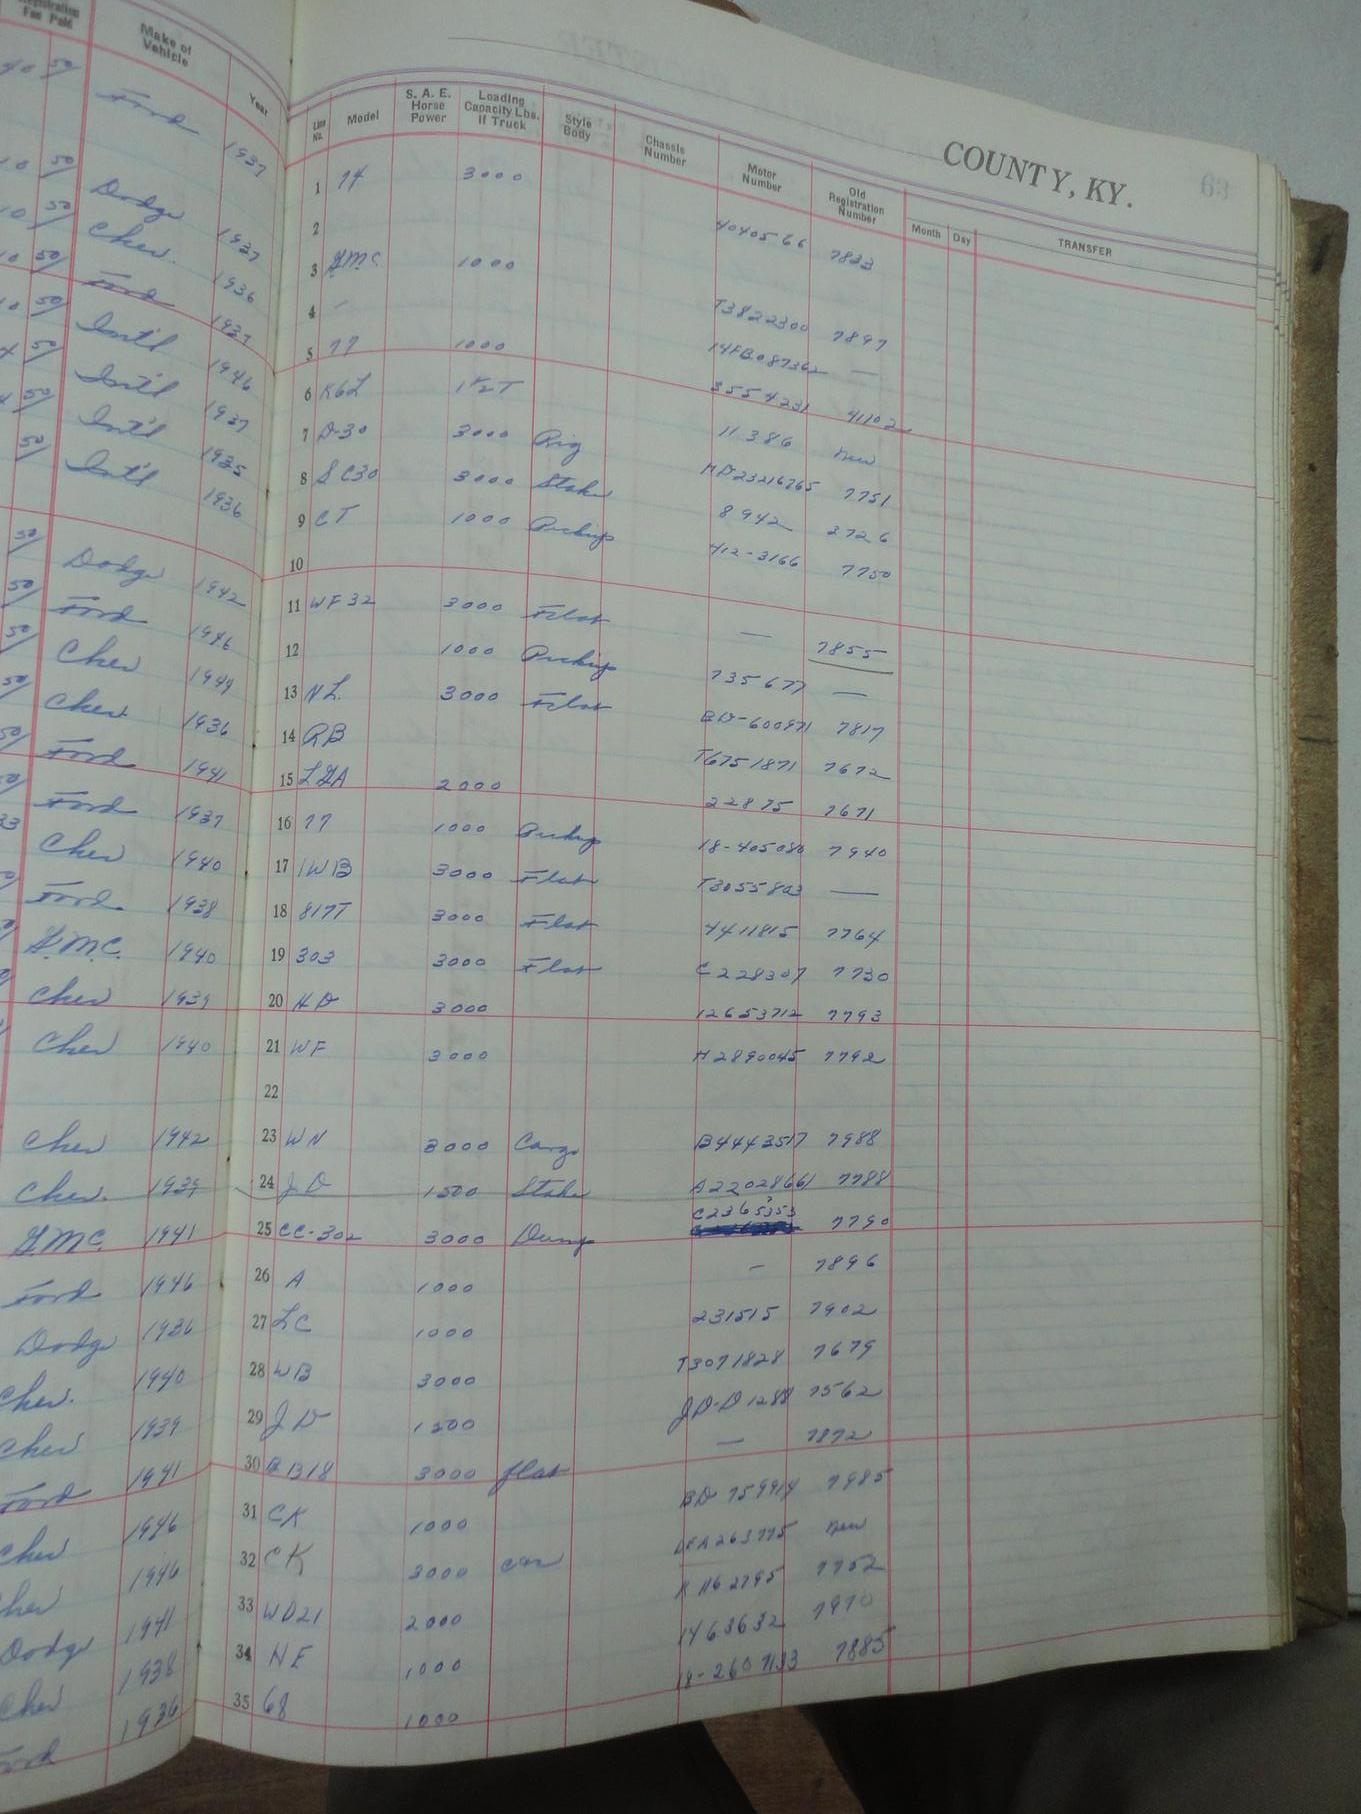 Registration Fee Paid Make of Vehicle Year Line No. Model S. A. E. Horse Power Loading Capacity Lbs. if Truck Style Body Chassis Number Motor Number Old Registration Number Month Day TRANSFER
COUNTY, KY. 63
50 Ford 1937 1 74 3000 4040566 7833
2
50 Dodge 1937 3 G.M.C. 1000 T3822300 7897
50 Chev. 1936 4 — —
50 Ford 1937 5 77 1000 3554231 41102
50 Int'l 1946 6 K6L 1 1/2 T 11386 New
50 Int'l 1937 7 D-30 3000 Rig HD23216765 7751
50 Int'l 1935 8 SC30 3000 Stake 8942 3726
50 Int'l 1936 9 CT 1000 Pickup 412-3166 7750
10
50 Dodge 1942 11 WF32 3000 Flat — 7855
50 Ford 1946 12 1000 Pickup 735677 —
50 Chev 1944 13 NL. 3000 Flat BD-600971 7817
50 Chev. 1936 14 RB T6751871 7672
50 Ford 1941 15 LGA 2000 22875 7671
50 Ford 1937 16 77 1000 Pickup 18-405080 7940
Chev 1940 17 1WB 3000 Flat T3055803 —
Ford. 1938 18 817T 3000 Flat 4411815 7764
G.M.C. 1940 19 303 3000 Flat C228307 7730
Chev 1939 20 ND 3000 12653712 7793
Chev 1940 21 WF 3000 H2890045 7792
22
Chev 1942 23 WN 3000 Cargo B4443517 7988
Chev. 1939 24 JD 1500 Stake A22028661 7788
G.M.C 1941 25 CC-302 3000 Dump C2365353 7790
Ford 1946 26 A 1000 — 7896
Dodge 1936 27 LC 1000 231515 7902
Chev. 1940 28 WB 3000 T3071828 7679
Chev 1939 29 JD 1500 JD-D1288 7562
Ford 1941 30 BB18 3000 flat — 7872
Chev 1946 31 CK 1000 BD 759914 7985
Chev 1946 32 CK 3000 New
Dodge 1941 33 WD21 2000 7752
Chev 1938 34 NE 1000 1463632 7970
Ford 1936 35 68 1000 18-2607133 7885